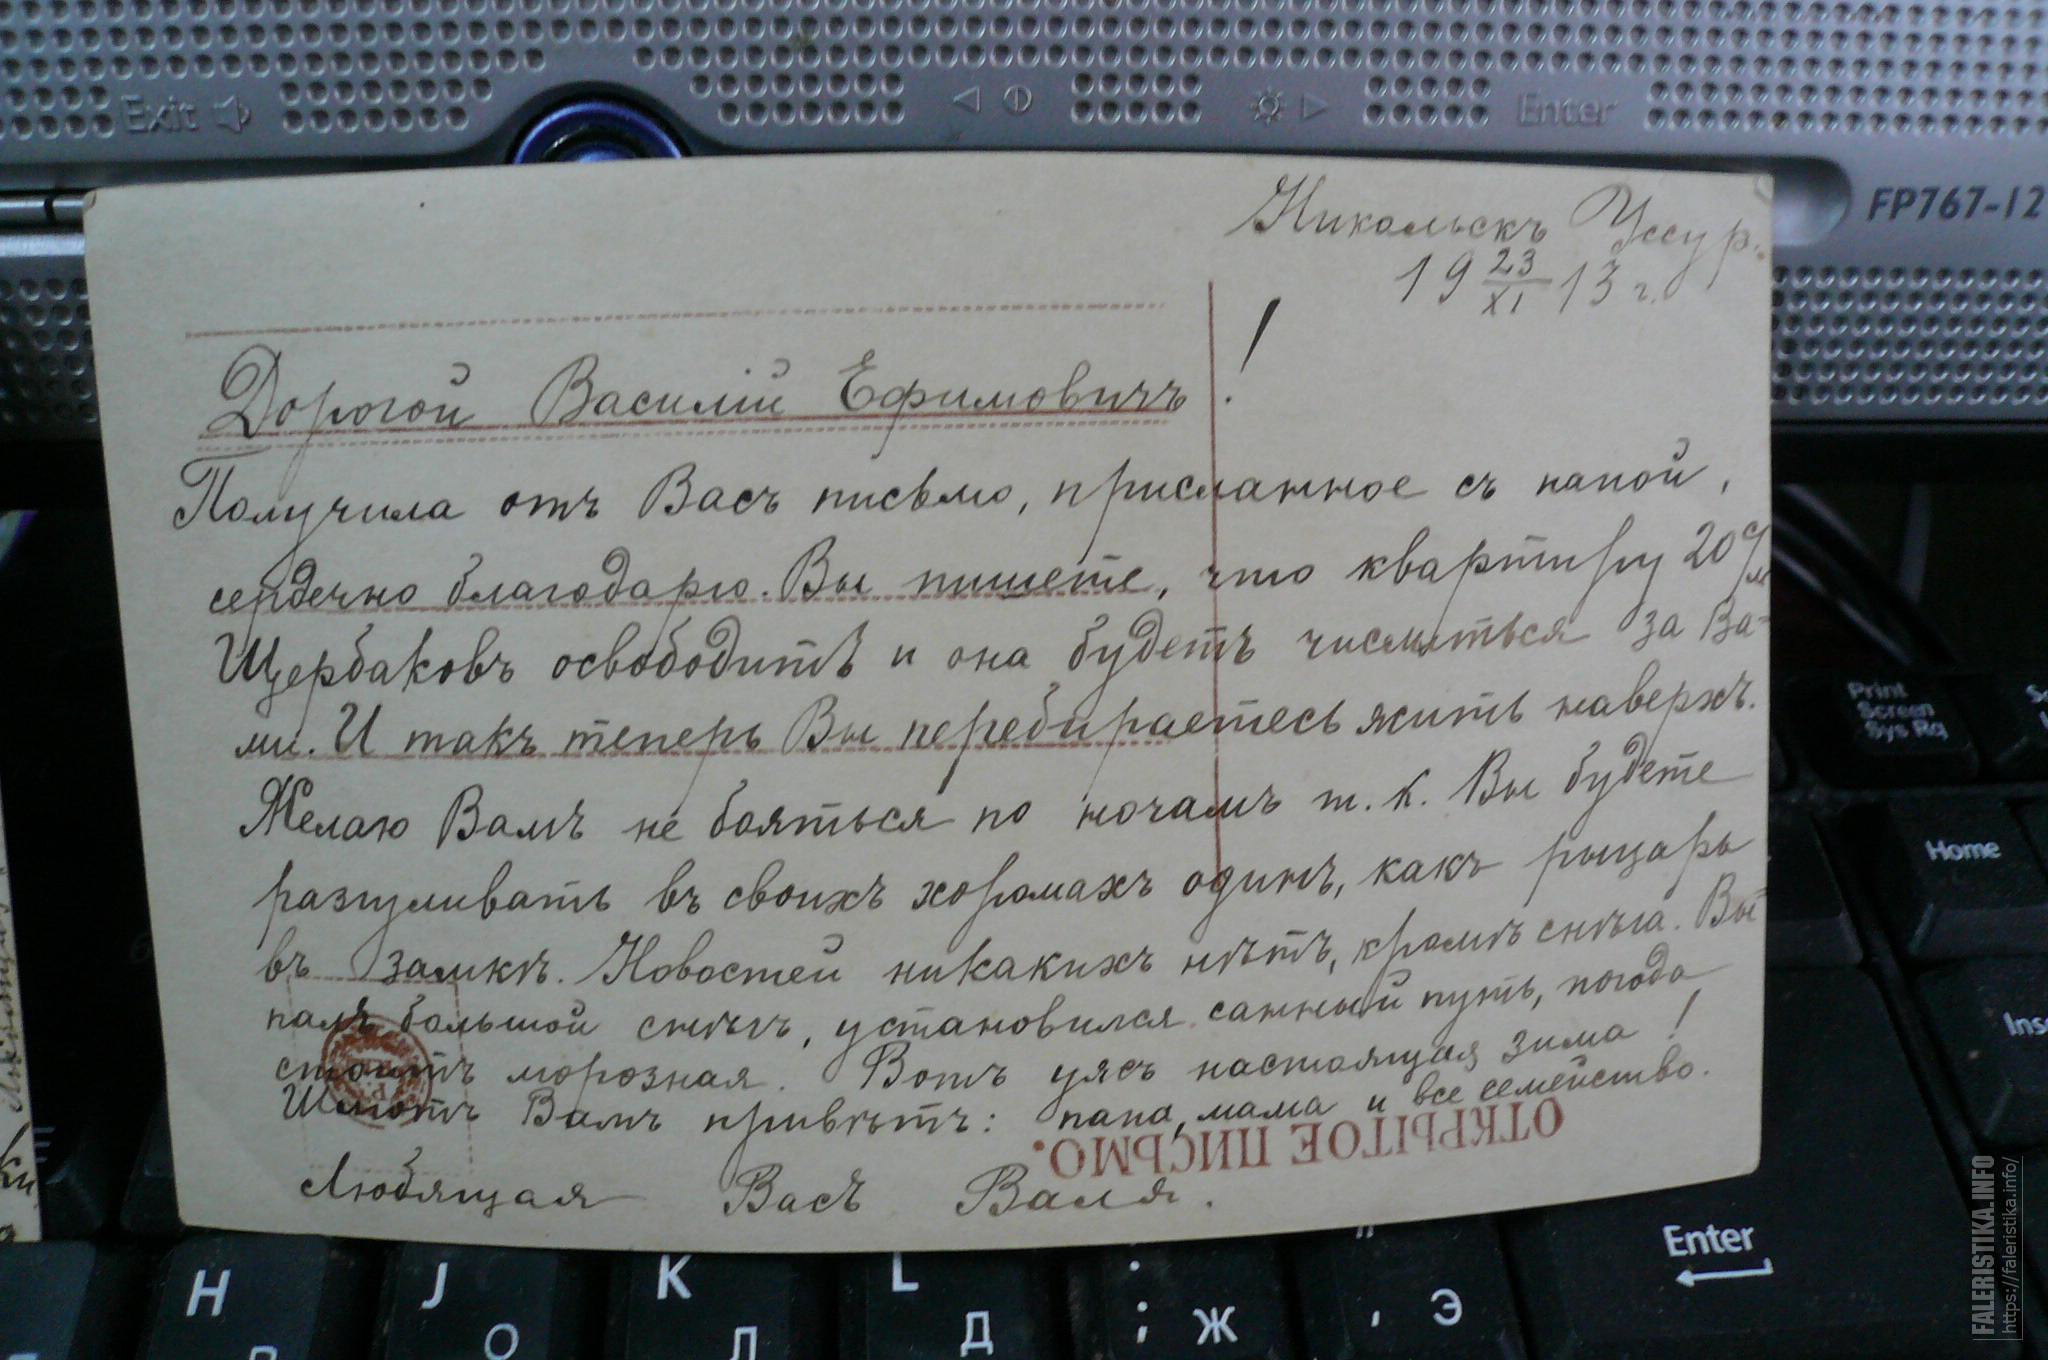 Exit
Enter
FP767-12
Никольскъ Уссур.
19 23/XI 13 г.
Дорогой Василій Ефимовичъ!
Получила отъ Васъ письмо, присланное съ папой,
сердечно благодарю. Вы пишете, что квартиру 20
Щербаковъ освободитъ и она будетъ числиться за Ва-
ми. И такъ теперь Вы перебираетесь жить наверхъ.
Желаю Вамъ не бояться по ночамъ т.к. Вы будете
разгуливать въ своихъ хоромахъ одинъ, какъ рыцарь
въ замкѣ. Новостей никакихъ нѣтъ, кромѣ снѣга. Вы
палъ большой снѣгъ, установился санный путь, погода
стоитъ морозная. Вотъ ужъ настоящая зима!
Шлютъ Вамъ привѣтъ: папа, мама и все семейство.
Любящая Васъ Валя.
ОТКРЫТОЕ ПИСЬМО.
Print
Screen
Sys Rq
Home
Ins
Enter
H
J
K
L
О
Л
Д
; Ж
' Э
FALERISTIKA.INFO
https://faleristika.info/